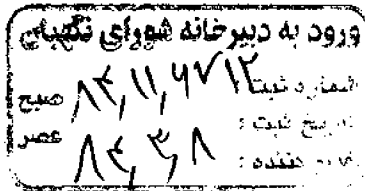 ورود به دبیرخانه شورای نگهبان
شماره ثبت : ۸۴,۱۱,۶۷۱۲ صبح
تاریخ ثبت : ۸۴,۳,۸ عصر